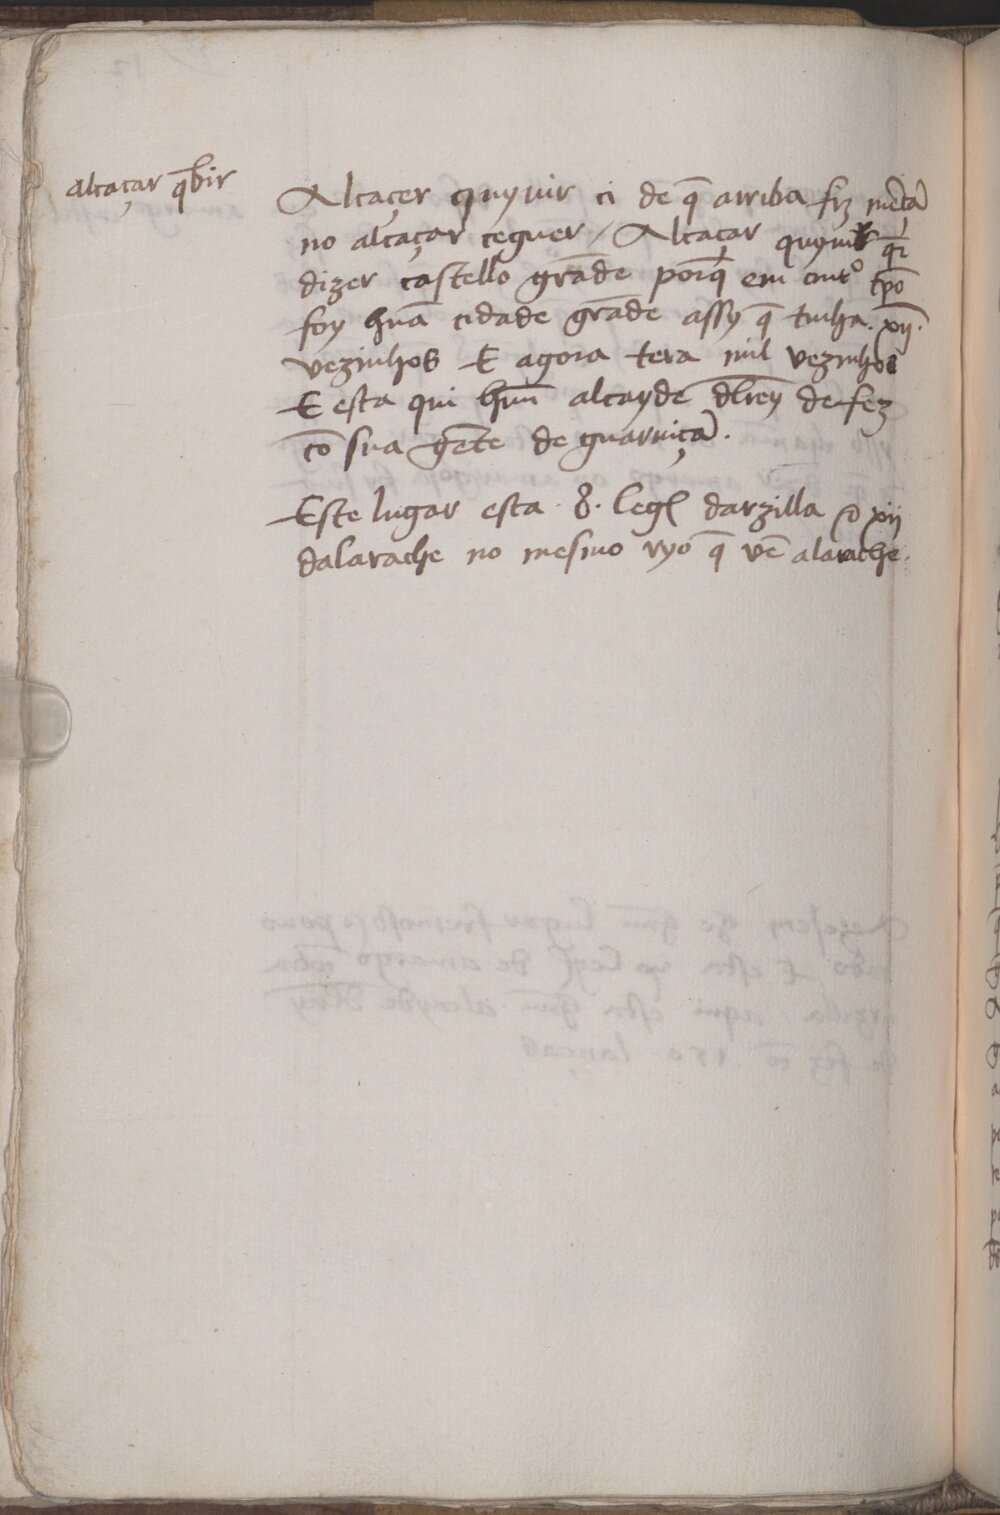 alcaçar q̄bir
Alcaçer quyuir ci de q̄ arriba fiz mẽcã
no alcaçar ceguer / Alcaçar quyuir q̄r
dizer castello grãde porq̄ em out.º tp̄o
foy hũa cidade grãde assy q̄ tinha. xij.
vezinhos E agora tera mil vezinhos
E esta qui hũ alcayde dlrey de fez
cõ sua gẽte de guarniçã.
Este lugar esta .8. legˢ darzilla & xij
dalarache no mesmo ryo q̄ vẽ alarache.